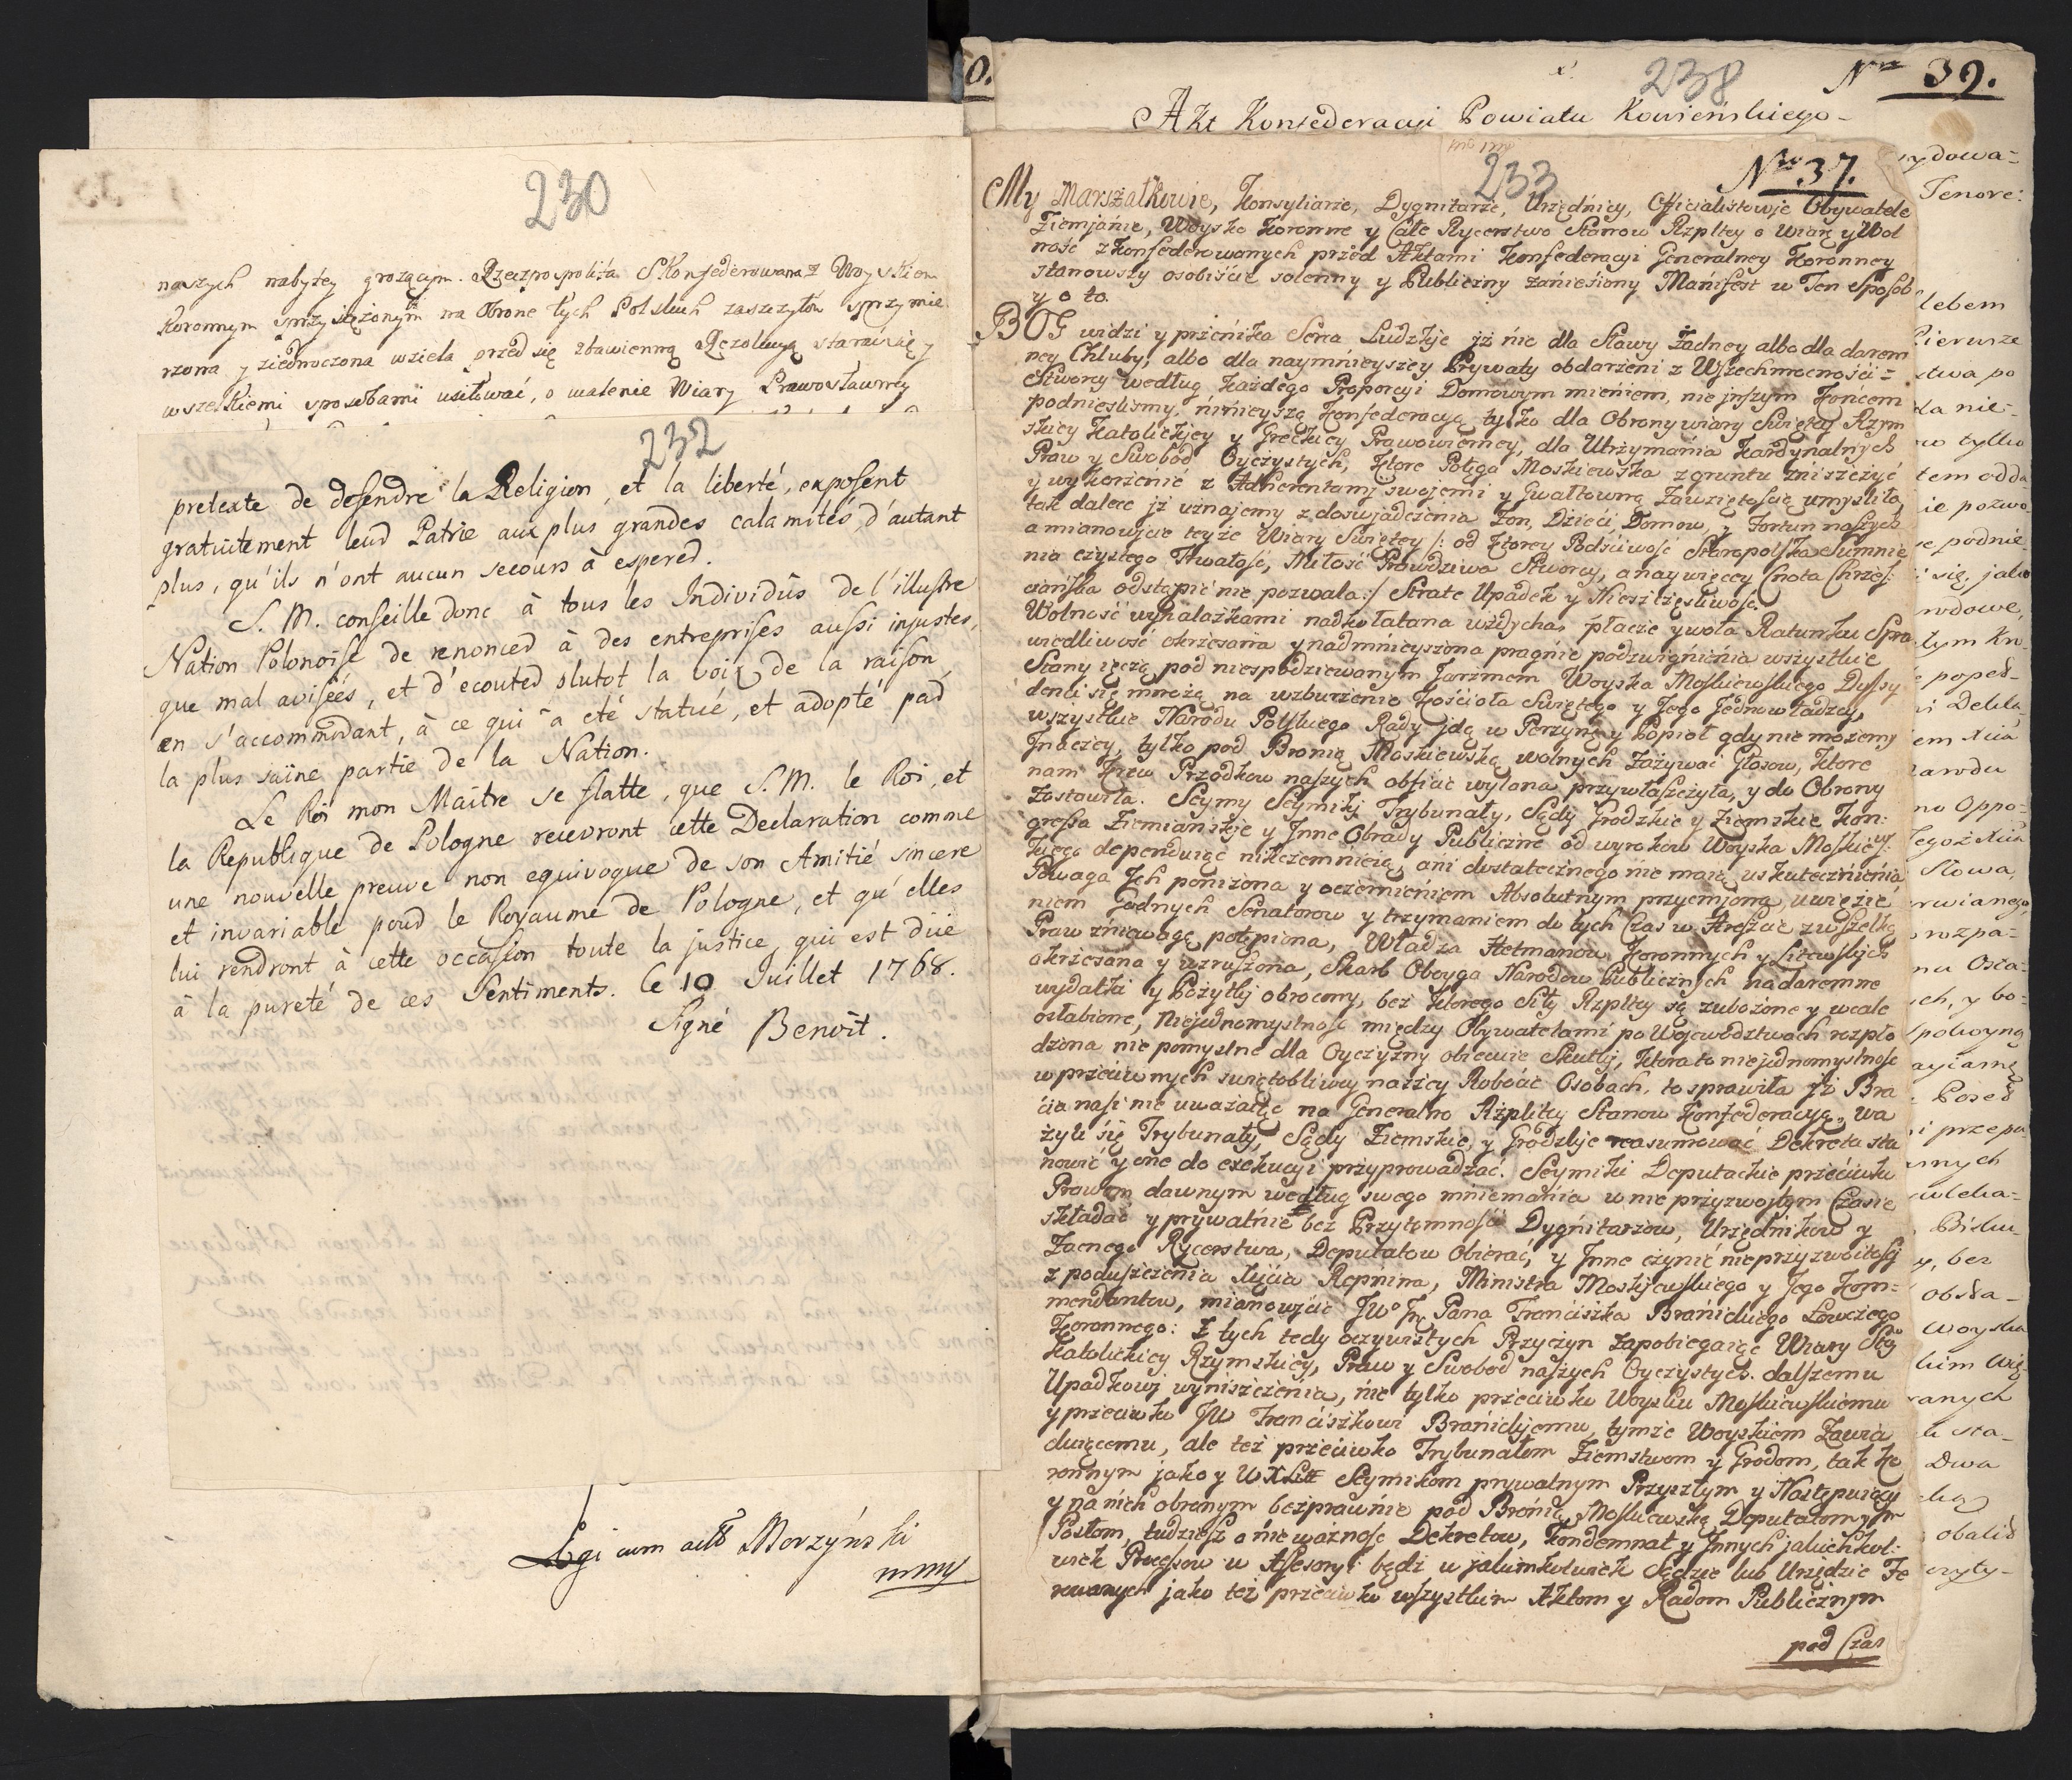 230
naszych nabytey grożącym. Rzeczpospolita Skonfederowana z Woyskiem
Koronnym sprzysiężonym na Obronę tych Polskich zaszczytów sprzymie
rzona y ziednoczona wzieła przed się zbawienną Rezolucyą starać się y
wszelkiemi sposobami usiłować, o walenie Wiary Prawosławney
232
pretexte de defendre la Religion, et la liberté, exposent
gratuitement leur Patrie aux plus grandes calamités, d'autant
plus, qu'ils n'ont aucun secours à esperer.
S. M. conseille donc à tous les Individûs de l'illustre
Nation Polonoise de renoncer à des entreprises aussi injustes,
que mal avisées, et d'ecouter plutot la voix de la raison,
en s'accommodant, à ce qui a eté statué, et adopté par
la plus saine partie de la Nation.
Le Roi mon Maitre se flatte, que S. M. le Roi, et
la Republique de Pologne recevront cette Declaration comme
une nouvelle preuve non equivoque de son Amitié sincere
et invariable pour le Royaume de Pologne, et qu'elles
lui rendront à cette occasion toute la justice, qui est düe
à la pureté de ces Sentiments. Ce 10 Juillet 1768.
Signé Benoit.
Legi cum actis Morzyński
mmp
0.
238
Nro 39.
Akt Konfederacyi Powiatu Kowieńskiego
233
Nro 37.
My Marszałkowie, Konsyliarze, Dygnitarze, Urzędnicy, Officialistowie Obywatele
Ziemianie, Woysko Koronne y Całe Rycerstwo Stanow Rzpltey o Wiarę y Wol
ność zkonfederowanych przed Aktami Konfederacyi Generalney Koronney
stanowszy osobiście solenny y Publiczny zaniesiony Manifest w Ten Sposob
y o to.
BOG widzi y przenika Serca Ludzkie iż nie dla Sławy żadney albo dla darem
ney Chluby, albo dla naymnieyszey Prywaty obdarzeni z Wszechmocności
Stworcy według każdego Proporcyi Domowym mieniem, nie inszym Końcem
podnieslismy, ninieyszą Konfederacyą tylko dla Obrony wiary Swiętey Rzym
skiey Katolickiey y Greckiey Prawowierney, dla Utrzymania Kardynalnych
Praw y Swobod Oyczystych, ktore Potęga Moskiewska z gruntu zniszczyć
y wykorzenić z Adherentami swojemi y Gwałtowną Zawziętością umysliła,
tak dalece iż uznajemy z doswiadczenia Zon, Dzieci Domow, y Fortun naszych
a mianowicie teyże Wiary Swiętey /: od ktorey Podściwość Staropolska Sumnie
nia czystego Trwałość, Miłość Prawdziwa Stworcy, a naywięcey Cnota Chrześ:
ciańska odstąpić nie pozwala :/ Stratę Upadek y Nieszczęśliwość.
Wolność wynalazkami nadkołatana wzdycha, płacze y woła Ratunku Spra
wiedliwość okrzesana y nadmnieyszona pragnie podzwignienia wszystkie
Stany ięczą pod niespodziewanym Jarzmem Woyska Moskiewskiego Dyssy
denci się mnożą na wzburzenie Kościoła Swiętego y Jego Jednowładzcy,
wszystkie Narodu Polskiego Rady idą w Perzynę y Popioł gdy nie możemy
Inaczey, tylko pod Bronią Moskiewską wolnych Zażywać Głosow, ktore
nam krew Przodkow naszych obficie wylana przywłaszczyła, y do Obrony
Zostawiła. Seymy Seymiki Trybunały, Sądy Grodzkie y Ziemskie Kon:
gressa Ziemianskie y Inne Obrady Publiczne od wyrokow Woyska Moskiew:
skiego dependuiąc nikczemnieią, ani dostatecznego nie maią uskutecznienia
Powaga Ich poniżona y oczernieniem Absolutnym przycmioną, uwięzie
niem Godnych Senatorow y trzymaniem do tych Czas w Areszcie z wszelką
Praw zniewagą potępiona, Władza Hetmanow Koronnych y Litewskich
okrzesana y wzruszona, Skarb Oboyga Narodow Publicznych nadaremne
wydatki y Pożytki obrocony, bez ktorego Siły Rzpltey są zubożone y wcale
osłabione, Niejednomyslność między Obywatelami po Wojewodztwach rozpło
dzona nie pomyslne dla Oyczyzny obiecuie Skutki, ktora to niejednomyslność
w przeciwnych swiętobliwey naszey Robocie Osobach, to sprawiła Iż Bra
cia nasi nie uważaiąc na Generalną Rzpltey Stanow Konfederacyą, wa
żyli się Trybunały, Sądy Ziemskie y Grodzkie reasumować Dekreta sta
nowić y one do exekucyi przyprowadzać. Seymiki Deputackie przeciwko
Prawom dawnym według swego mniemania w nie przyzwoitym Czasie
składać y prywatnie bez Przytomności Dygnitarzow, Urzędnikow y
Zacnego Rycerstwa, Deputatow Obierać, y Inne czynić nieprzyzwoitości
z poduszczenia Xięcia Repnina, Ministra Moskiewskiego y Jego Kom=
mendantow, mianowicie JWo Jmc Pana Franciszka Branickiego Łowczego
Koronnego: Z tych tedy oczywistych Przyczyn zapobiegaiąc Wiary Stey
Katolickiey Rzymskiey, Praw y Swobod naszych Oyczystych dalszemu
Upadkowi wyniszczenia, nie tylko przeciwko Woysku Moskiewskiemu
y przeciwko JW Franciszkowi Branickiemu, tymże Woyskiem Zawia
duiącemu, ale też przeciwko Trybunałom Ziemstwom y Grodom, tak ko
ronnym jako y W X Litt Seymikom prywatnym Przyszłym y Następuiącym
y na nich obranym bezprawnie pod Bronią Moskiewską Deputatom y
Posłom, tudziesz o nieważność Dekretow, Kondemnat y Innych jakichkol:
wiek Procesow w Assesoryi bądź w jakimkolwiek Sądzie lub Urzędzie Fe
rowanych jako też przeciwko wszystkim Aktom y Radom Publicznym
pod Czas
Tenore:
Pierwsze
stwa po
tem odda
podnie
się, jako
rodowe,
tym Kro
popeł
narodu
no Oppo
Słowa,
rozpa
nu Osta
ch, y bo
Posel
i przepa
y, bez
obsta
Woyska
ranych
Dwa
obalić